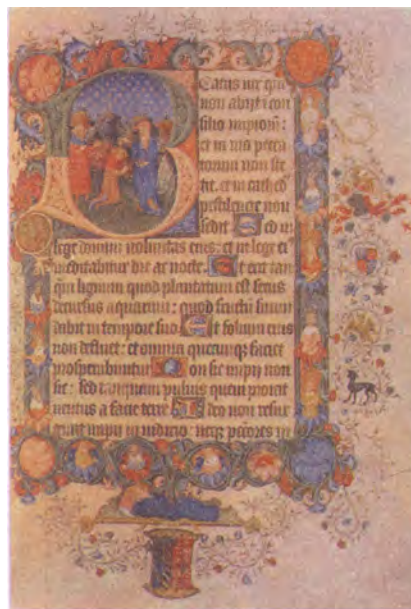 Beatus vir qui
non abijt i con
silio impiorū:
et in via pecca
torum non ste
tit. et in cathed
pestilencie non
sedit Sed in
lege domini voluntas eius: et in lege ei
meditabitur die ac nocte. Et erit tan
q̄m lignum quod plantatum est secus
decursus aquarum: quod fructū suum
dabit in tempore suo Et folium eius
non defluet: et omnia quecumq; faciet
prosperabuntur Non sic impii non
sic: sed tanquam puluis quem proicit
uentus a facie terre Ideo non resur
gunt impii in iudicio: neq; pctōres in